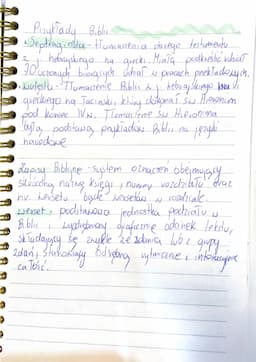 Przykłady Biblii
• Septuaginta - tłumaczenia starego testamentu
z j. hebrajskiego na grecki. Miało podkreślić udział
70 uczonych biorących udział w pracach przekładowych.
• Wulgata - Tłumaczenie Biblii z j. hebrajskiego i
greckiego na łaciński, który dokonał św Hieronim
pod koniec IV w. Tłumaczenie św Hieronima
było podstawą przykładów Biblii na języki
narodowe
Zapisy Biblijne - system oznaczeń obejmujący
skróconą nazwę księgi, numery rozdziału oraz
nr. wersetu bądź wersetów w rozdziale
werset - podstawowa jednostka podziału w
Biblii, wyodrębniony graficznie odcinek tekstu,
składający się zwykle ze zdania lub z grupy
zdań, stanowiący odrębną wytłaczenie,
całość.